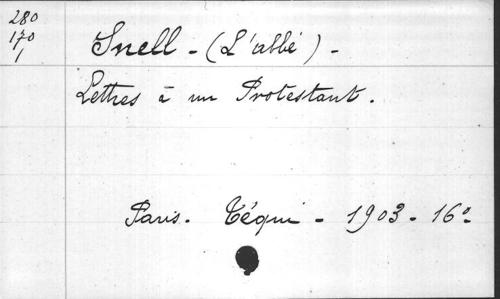 280
170
1
Snell - (L'abbé) -
Lettres à un Protestant.
Paris. Téqui - 1903 - 16º